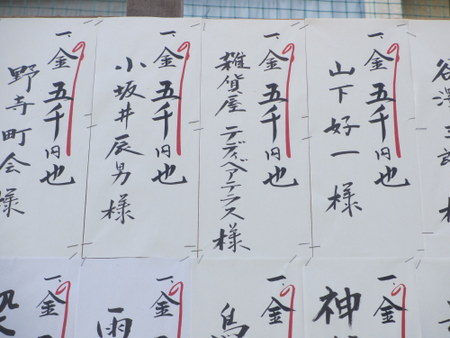 一、金五千円也
山下好一様
一、金五千円也
雑貨屋テディベアテラス様
一、金五千円也
小坂井辰男様
一、金五千円也
野寺町会様
一、金
神
一、金
鳥
一、金
雨
一、金